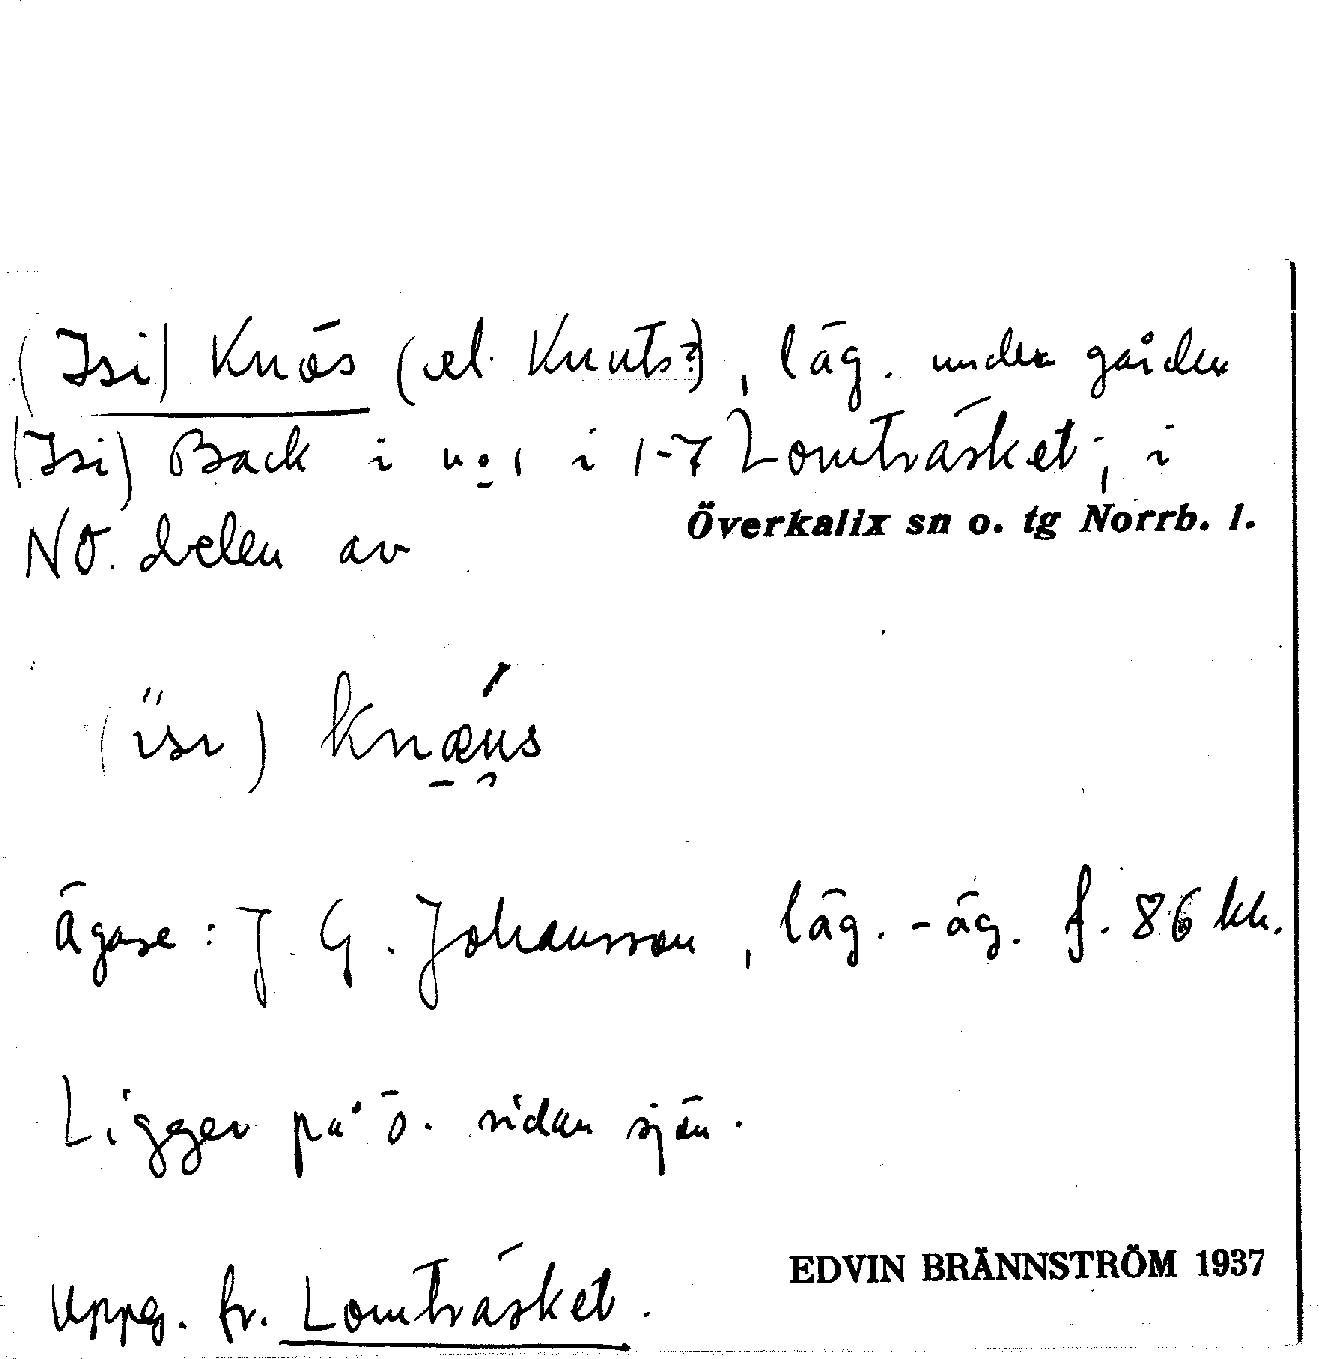 (Isi) Knös (el. Knuts?), läg. under gården
(Isi) Back i no 1 i 1-7 Lomträsket; i
Överkalix sn o. tg Norrb. l.
NO. delen av
(ïsi) knæu̯s
Ägare: J. G. Johansson, läg. -äg. f. 86 hh.
Ligger på ö. sidan sjön.
EDVIN BRÄNNSTRÖM 1937
Uppg. fr. Lomträsket.